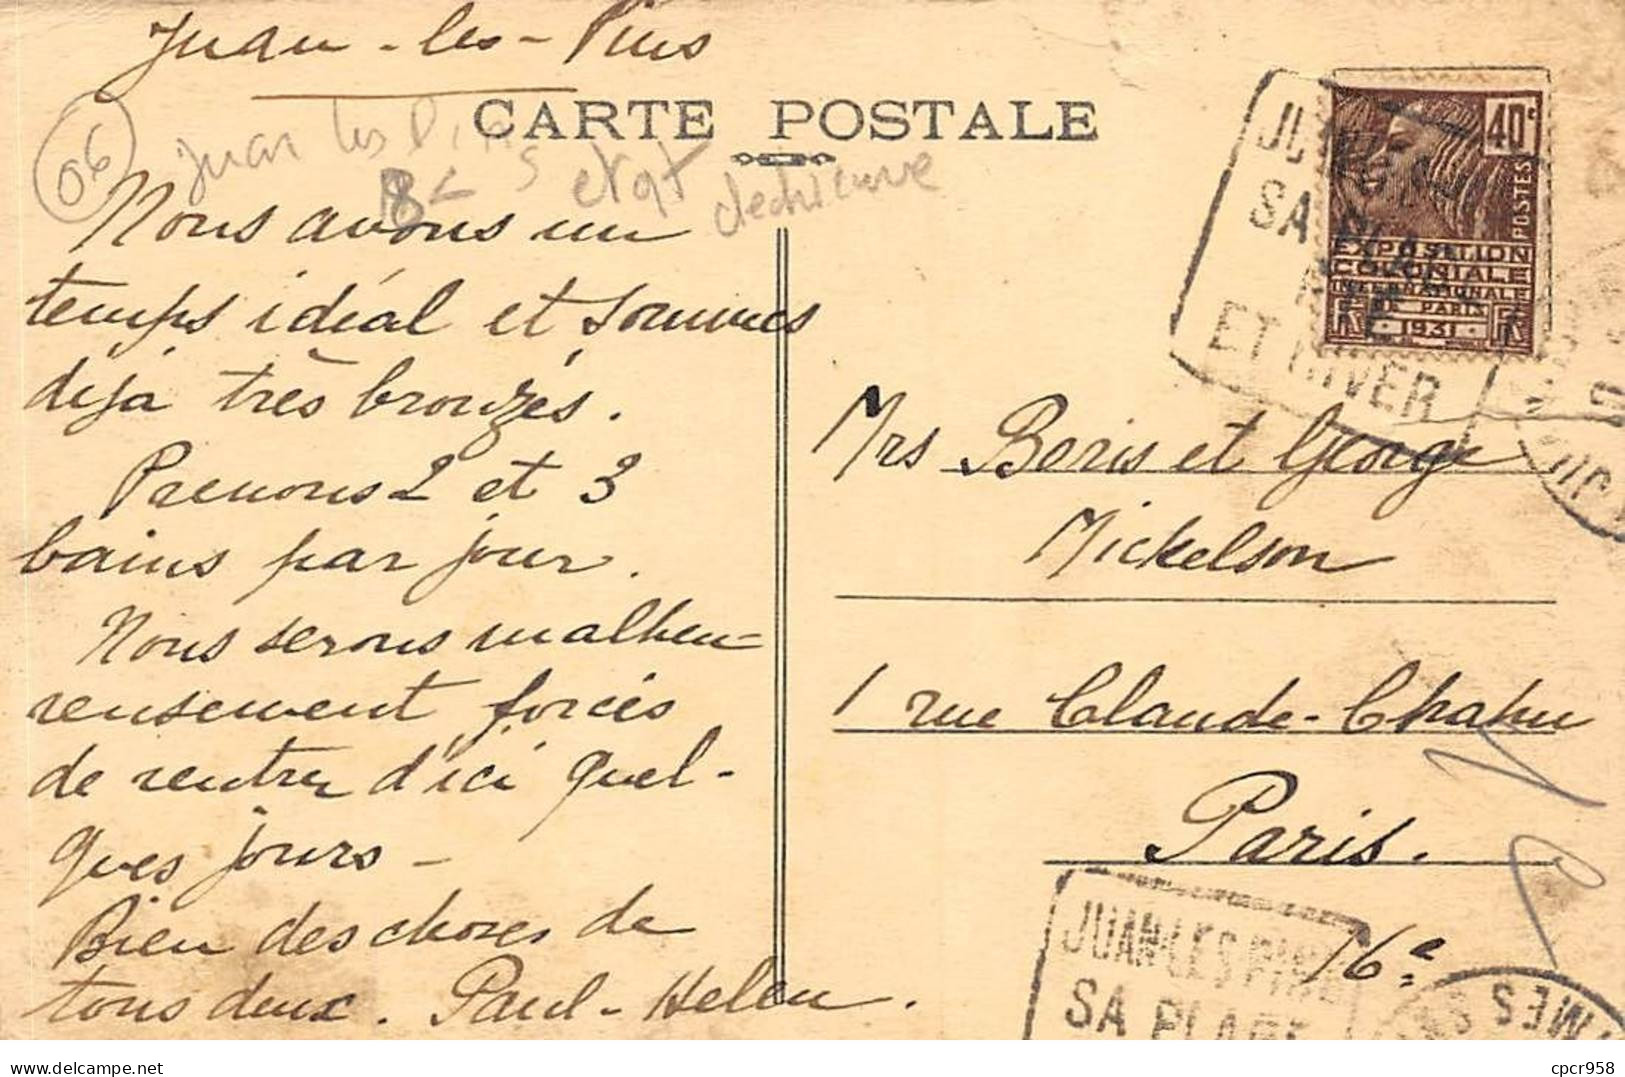 Juan-les-Pins
CARTE POSTALE
06
Juan les Pins
8€ etat
dechirure
Nous avons un
temps idéal et sommes
déjà très bronzés.
Prenons 2 et 3
bains par jour.
Nous serons malheu-
reusement forcés
de rentrer d'ici quel-
ques jours -
Bien des choses de
tous deux. Paul-Helen.
40c
POSTES
EXPOSITION
COLONIALE
INTERNATIONALE
DE PARIS
1931
SA
ET HIVER
Mrs Boris et George
Mickelson
1 rue Claude-Chahu
Paris.
16e
JUAN LES PINS
SA PLAGE
cpcr958